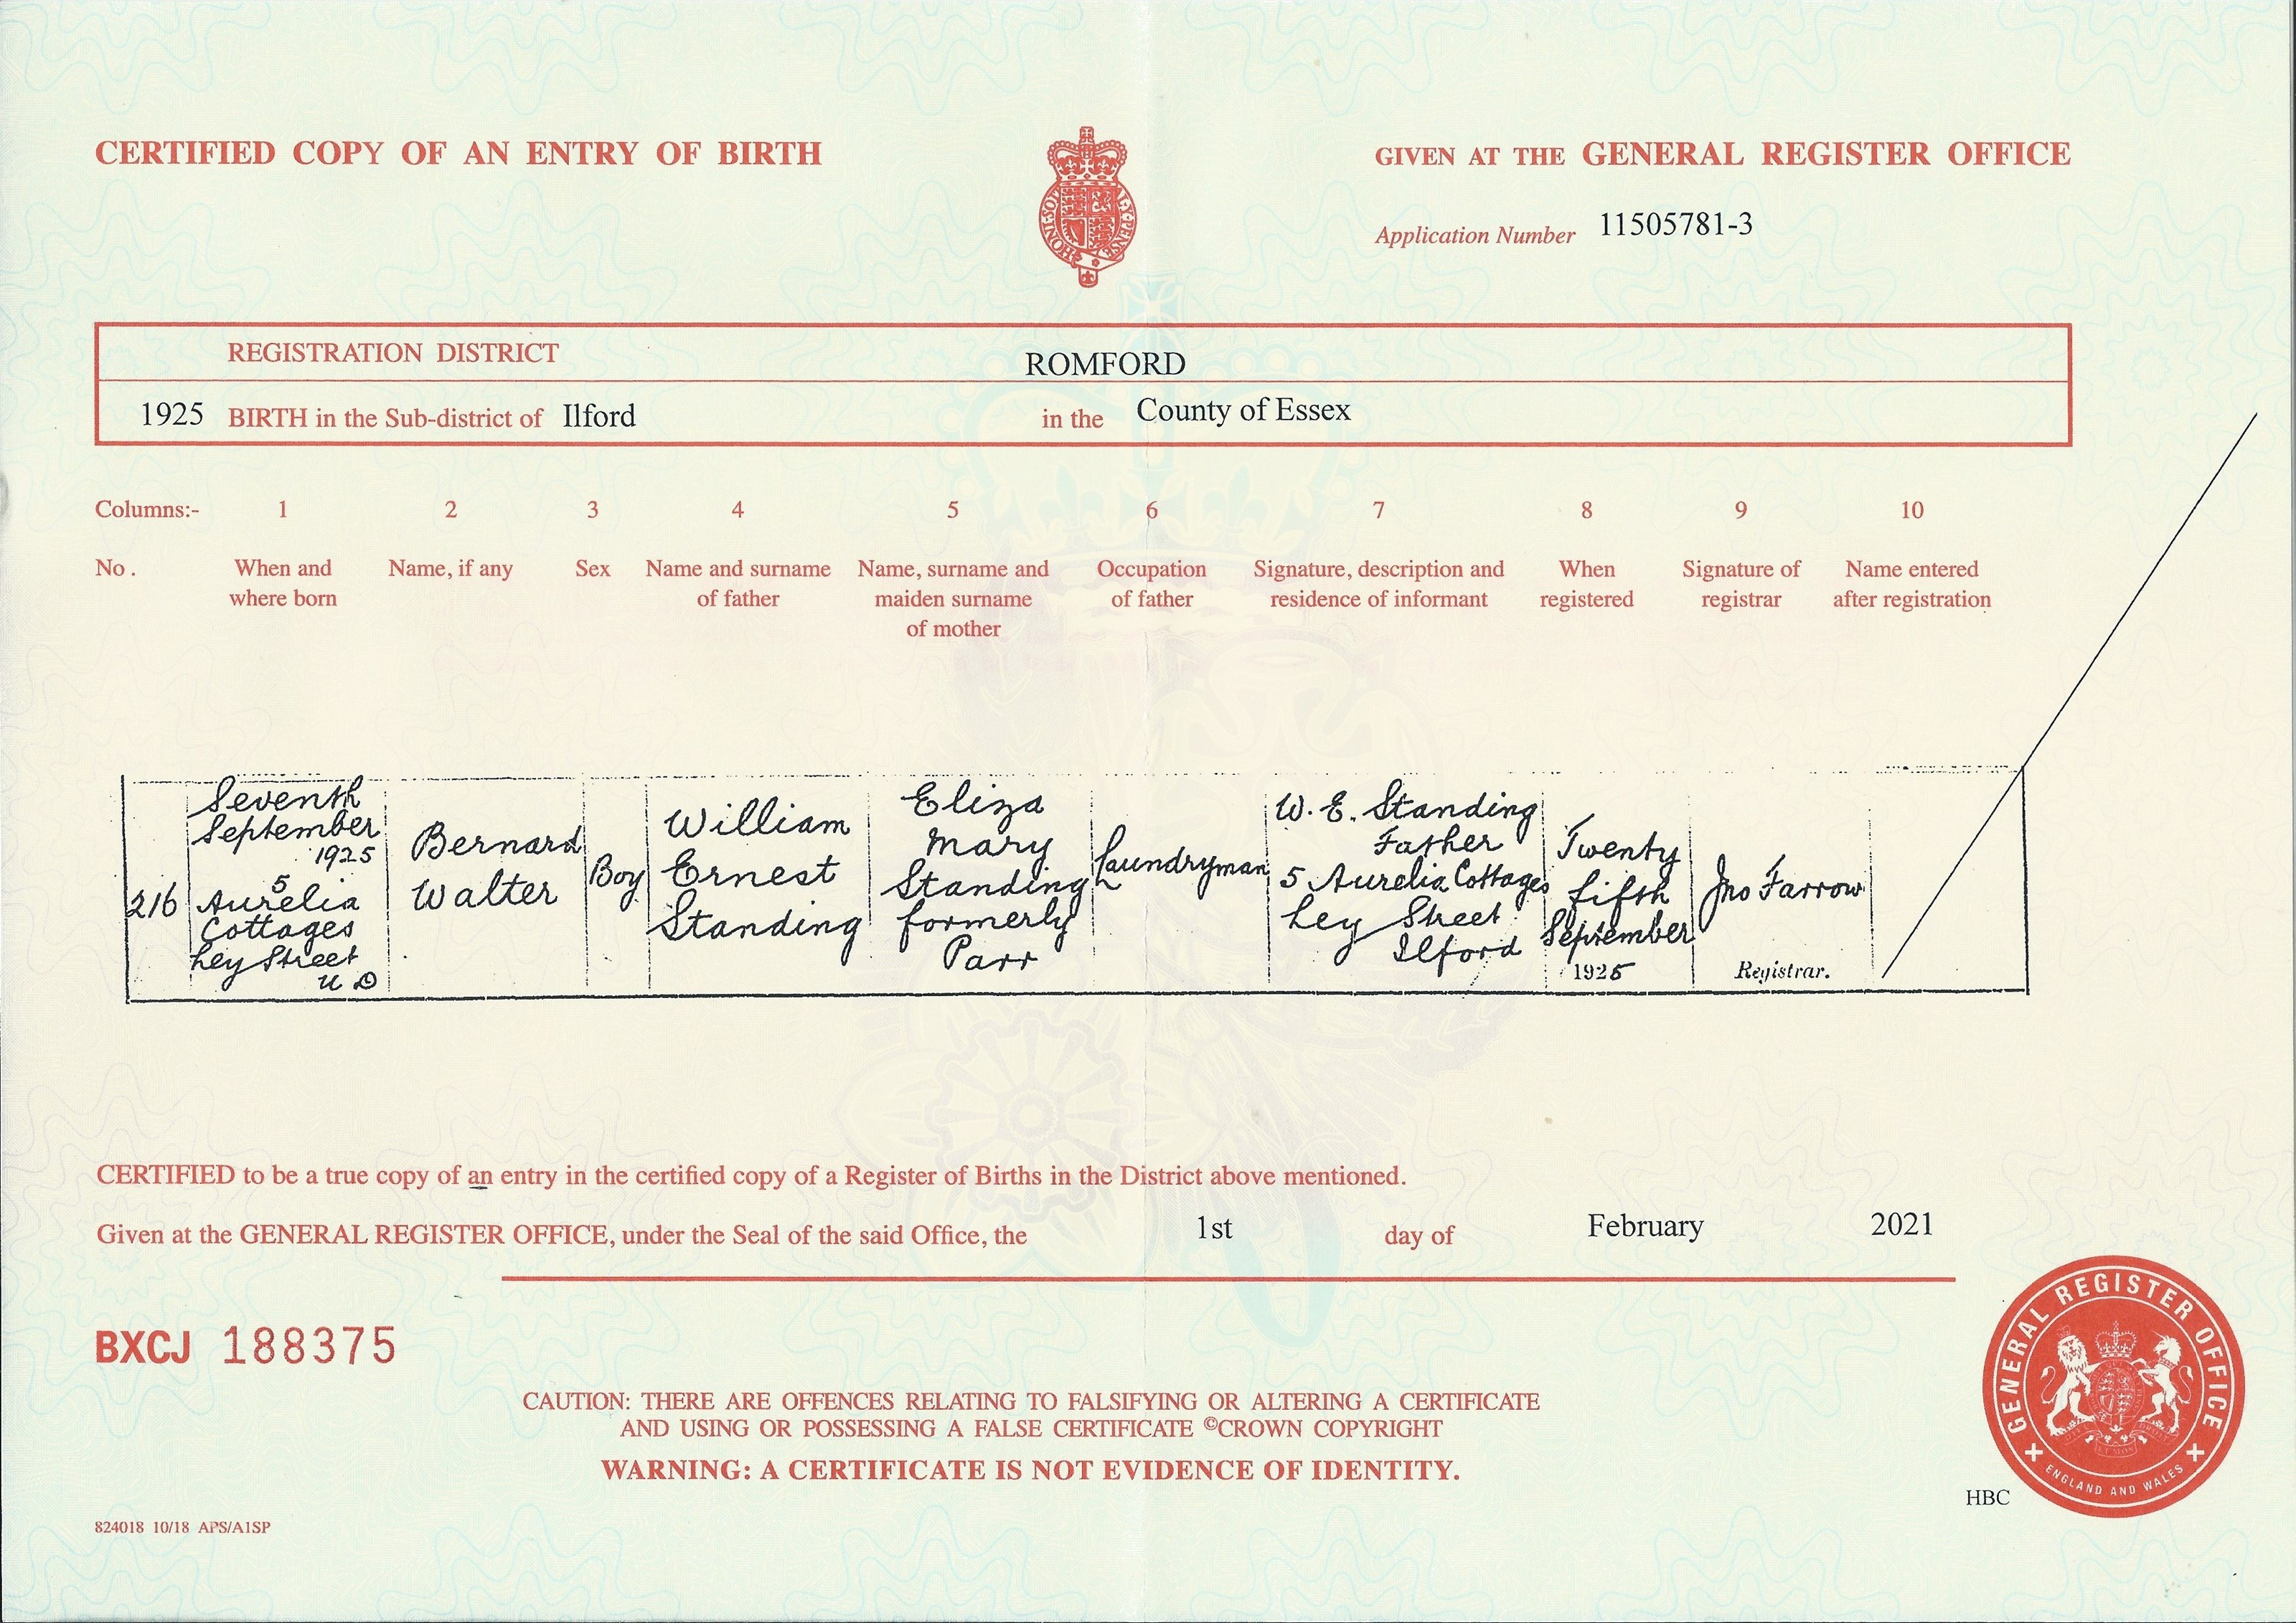 CERTIFIED COPY OF AN ENTRY OF BIRTH
GIVEN AT THE GENERAL REGISTER OFFICE
Application Number 11505781-3
REGISTRATION DISTRICT ROMFORD
1925 BIRTH in the Sub-district of Ilford in the County of Essex
Columns:- 1 2 3 4 5 6 7 8 9 10
No. When and where born
Name, if any
Sex
Name and surname of father
Name, surname and maiden surname of mother
Occupation of father
Signature, description and residence of informant
When registered
Signature of registrar
Name entered after registration
216
Seventh
September
1925
5
Aurelia
Cottages
Ley Street
U D
Bernard
Walter
Boy
William
Ernest
Standing
Eliza
Mary
Standing
formerly
Parr
Laundryman
W. E. Standing
Father
5 Aurelia Cottages
Ley Street
Ilford
Twenty
fifth
September
1925
Jno Farrow
Registrar.
CERTIFIED to be a true copy of an entry in the certified copy of a Register of Births in the District above mentioned.
Given at the GENERAL REGISTER OFFICE, under the Seal of the said Office, the 1st day of February 2021
BXCJ 188375
CAUTION: THERE ARE OFFENCES RELATING TO FALSIFYING OR ALTERING A CERTIFICATE
AND USING OR POSSESSING A FALSE CERTIFICATE ©CROWN COPYRIGHT
WARNING: A CERTIFICATE IS NOT EVIDENCE OF IDENTITY.
GENERAL REGISTER OFFICE
ENGLAND AND WALES
HBC
824018 10/18 APS/A1SP